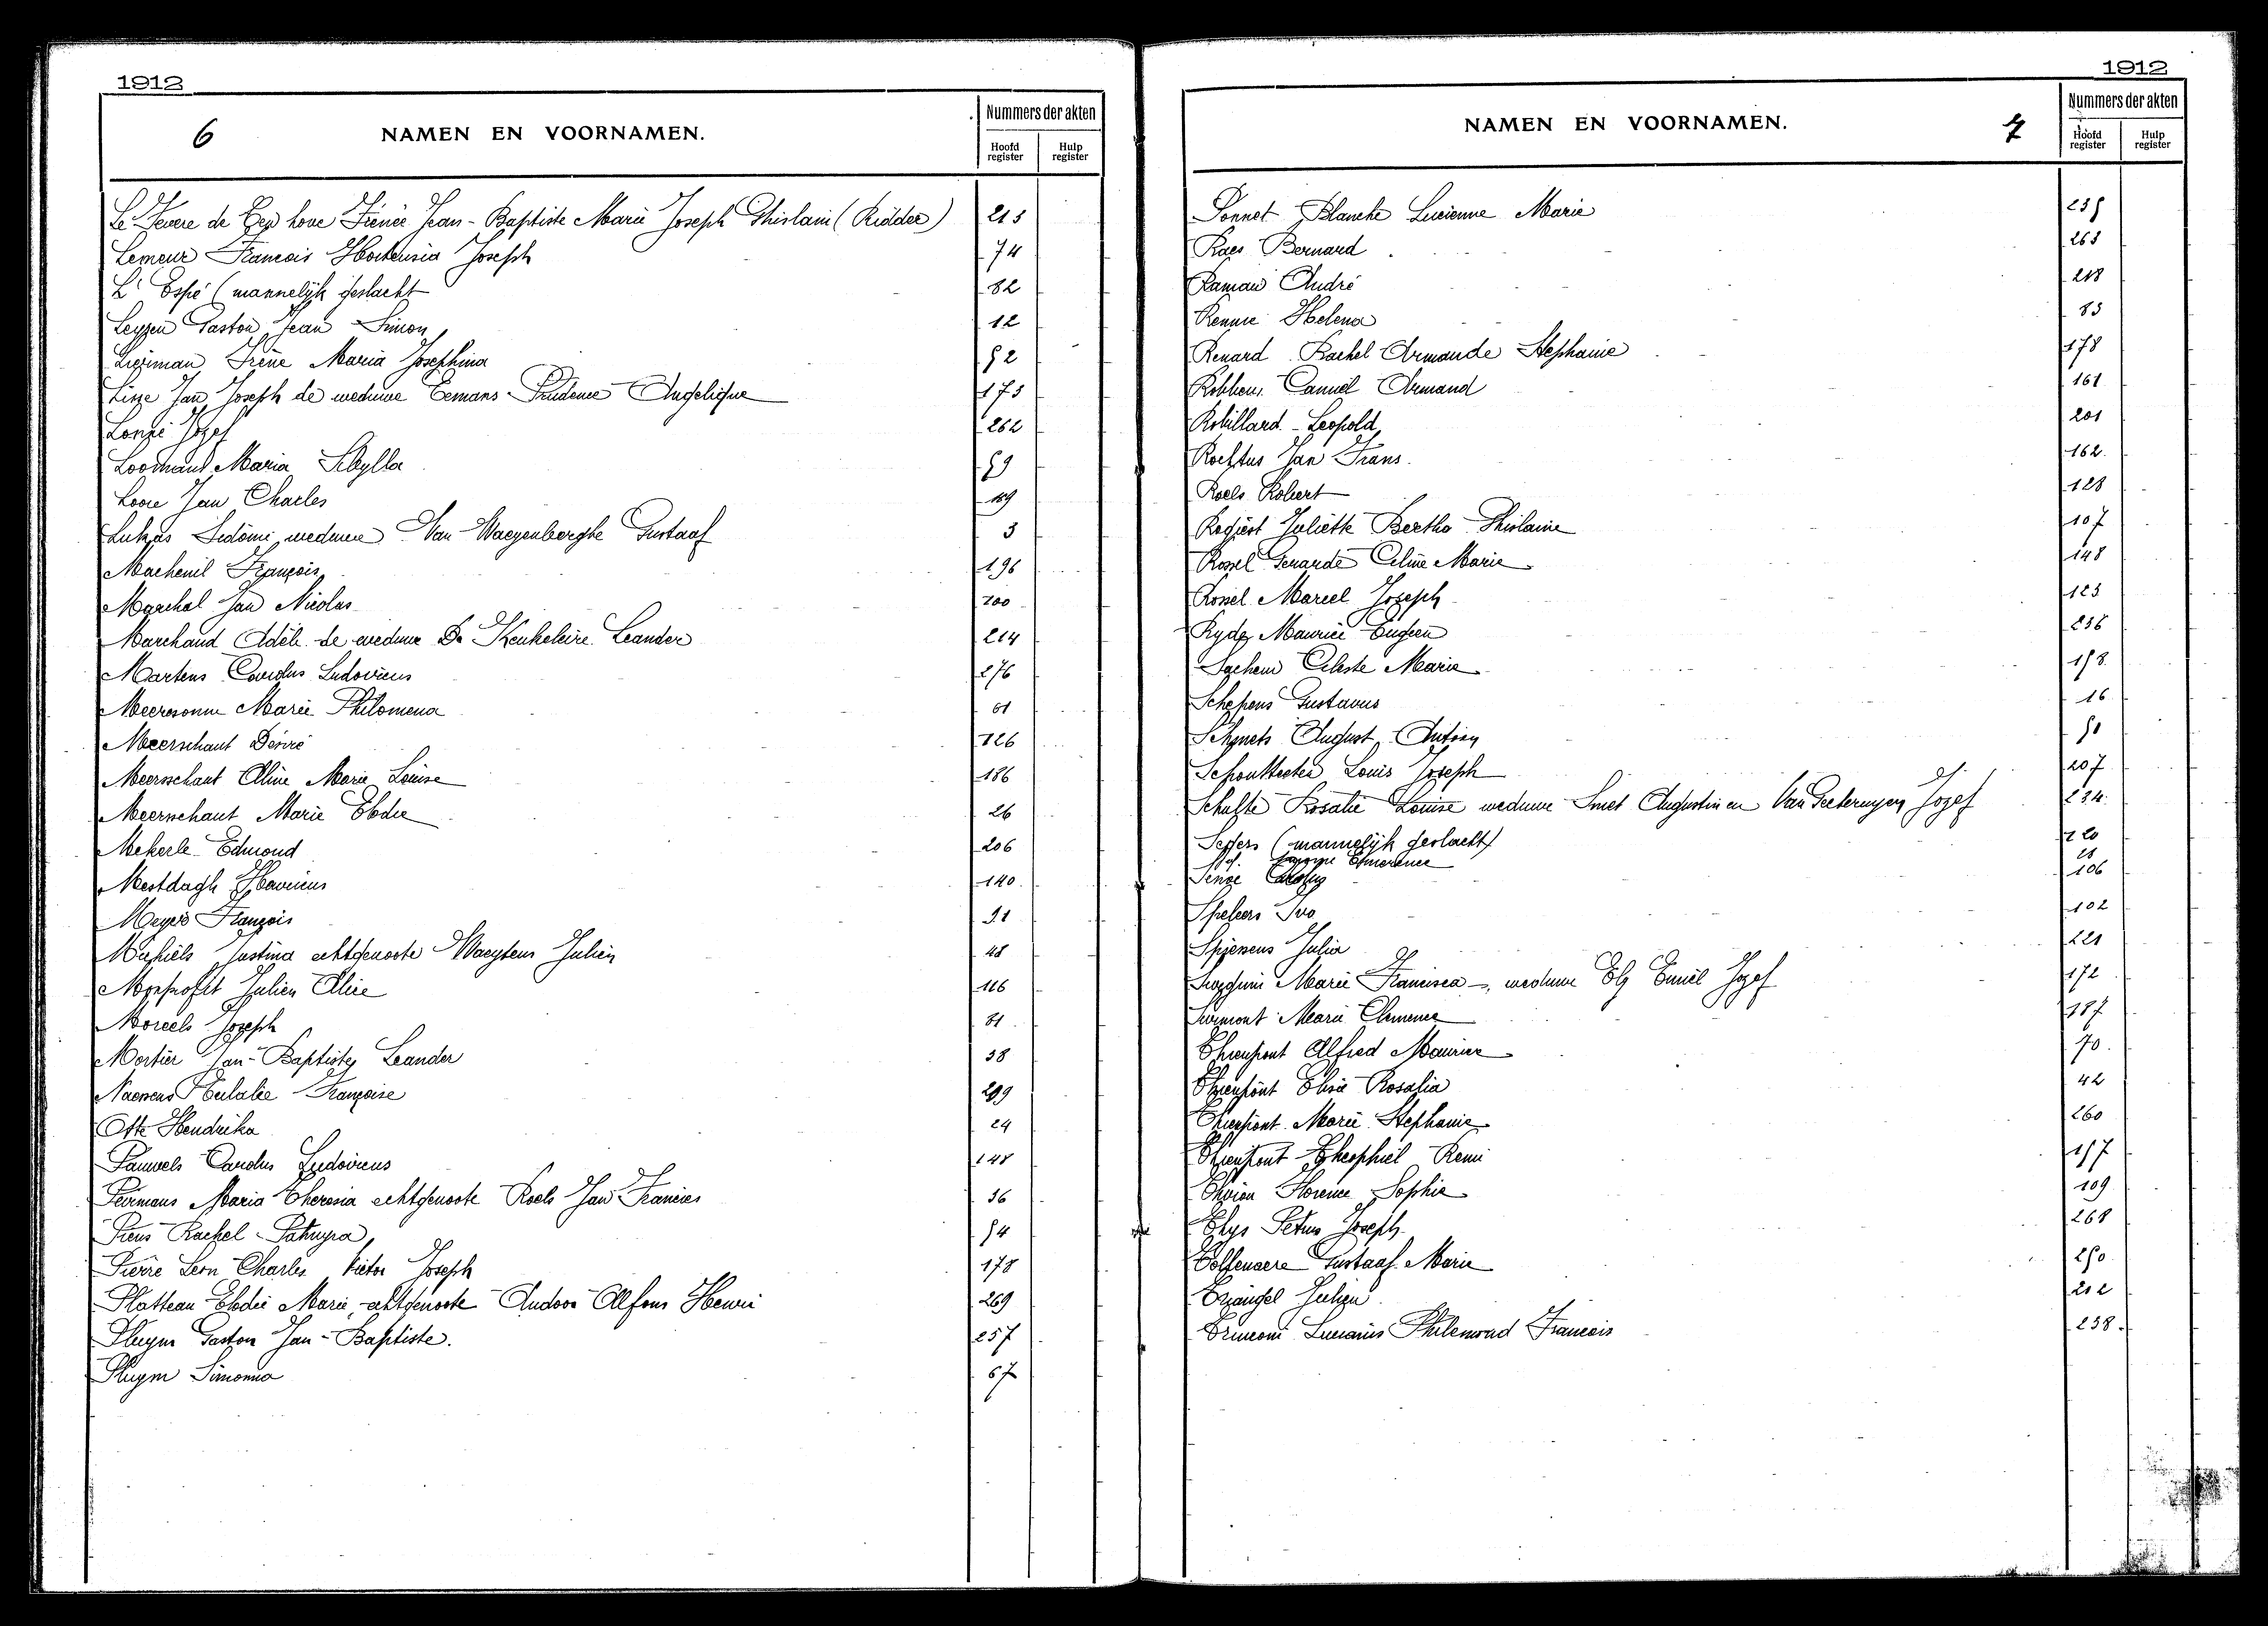 1912
6 NAMEN EN VOORNAMEN. Nummers der akten
Hoofd register Hulp register
Le Fevere de Ten hove Jean-Baptiste Marie Joseph Ghislain (Ridder) 213
Lemeur Francois Hortensia Joseph 74
L'Espé (mannelijk geslacht 82
Leyzen Gaston Jean Simon 12
Irène Maria Josephina 52
Jan Joseph de weduwe Eemans Prudence Angelique 173
Jozef 262
Maria Sibylla 59
Loore Jan Charles
Lukas Sidonie weduwe Van Waeyenberghe Gustaaf 3
Machenil François 196
Marchal Jan Nicolas 200
Marchand Adèle de weduwe De Keukeleire Leander 214
Martens Carolus Ludovicus 276
Meeresonne Marie Philomena 61
Meerschaut Désiré 126
Meersschaut Aline Marie Louise 186
Meerschaut Marie Elodie 26
Mekerle Edmond 206
Mestdagh Henricus 140
Meyers François 91
Michiels Justina echtgenoote Waeytens Julien 48
Julien Alice 116
Moreels Joseph 81
Mortier Jan-Baptiste Leander 38
Naessens Eulalie Françoise 299
Otte Hendrika 24
Pauwels Carolus Ludovicus 148
Peirmans Maria Theresia echtgenoote Roels Jan Francies 36
Piens Rachel 54
Pierre Leon Charles Victor Joseph 178
Platteau Elodie Marie echtgenoote Audoor Alfons Henri 269
Pluym Gaston Jan-Baptiste. 257
Pluym Simonna 67
1912
NAMEN EN VOORNAMEN. 7 Nummers der akten
Hoofd register Hulp register
Ponnet Blanche Lucienne Marie 235
Raes Bernard 263
Raman André 218
Rennie Helena 83
Renard Rachel Armande Stephanie 178
Robbens Camiel Armand 161
Robillard Leopold 201
Roeftus Jan Frans. 162
Roels Robert 128
Juliette Bertha Ghislaine 107
Rossel Gerarde Celine Marie 148
Rossel Marcel Joseph 123
Ryde Maurice Eugeen 236
Sachem Celeste Marie 158
Schepens Gustavus 16
Schmets August Antoon 51
Schoutteeten Louis Joseph 207
Schulte Rosalie Louise weduwe Smet Augustin en Van Jozef 234
Segers (mannelijk geslacht) 220
Id. Emerence 28
Carolus 106
Speleers Ivo 102
Julia 221
Marie Francisca, weduwe Emiel Jozef 172
Surmont Marie Clemence 187
Thienpont Alfred Maurice 70
Thienpont Elisa Rosalia 42
Thienpont Marie Stephanie 260
Thienpont Theophiel Remi 157
Florence Sophie 109
Thys Petrus Joseph 268
Tolfenaere Gustaaf Marie 250
Triangel Julien 212
Lucianus Philemond Francois 238.